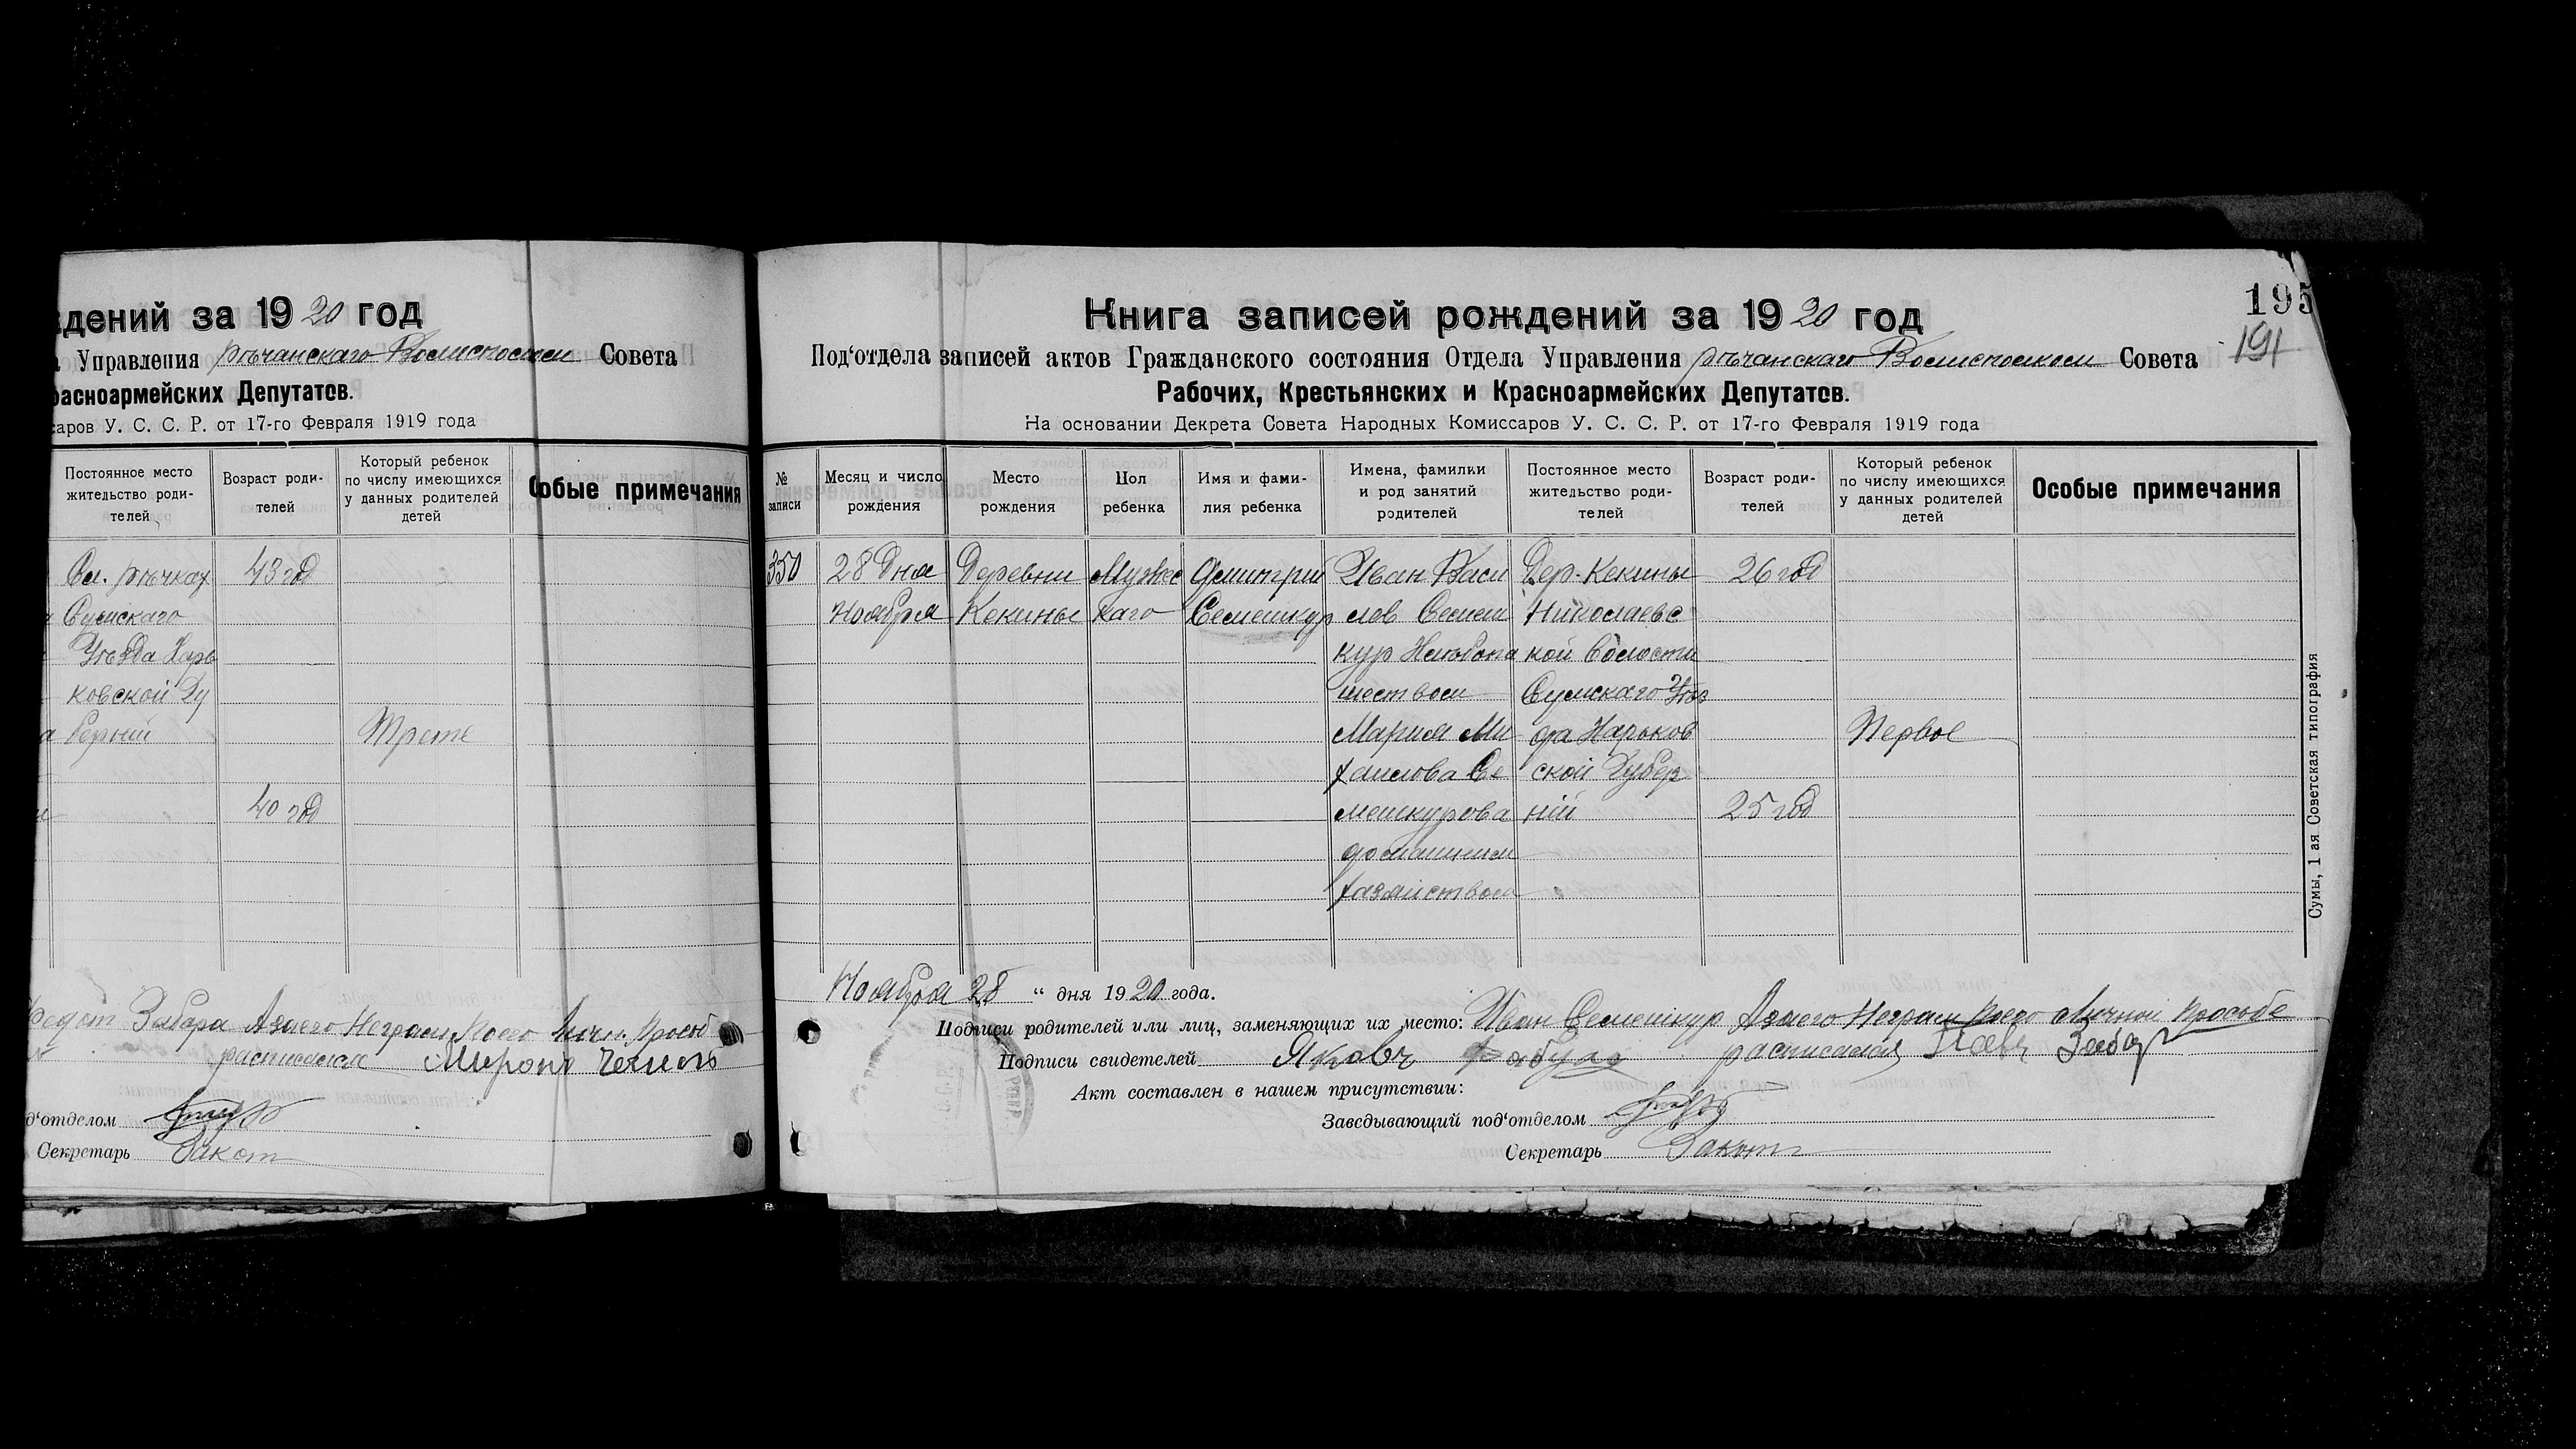 дений за 1920 год
Управления Речанскаго Волисполком Совета
расноармейских Депутатов.
саров У. С. С. Р. от 17-го Февраля 1919 года
Постоянное место жительство роди-телей
Возраст роди-телей
Который ребенок по числу имеющихся у данных родителей детей
собые примечания
Сл. Речках 43 год
Сумскаго
Уезда Харь
ковской Гу
берний Трете
40 год
Федот Забара А за его Неграм. по его личн. прозб
расписался Миронъ Чехиль
д‘отделом
Секретарь Закот
Книга записей рождений за 1920 год
195
191
Под‘отдела записей актов Гражданского состояния Отдела Управления Речанскаго Волисполком Совета
Рабочих, Крестьянских и Красноармейских Депутатов.
На основании Декрета Совета Народных Комиссаров У. С. С. Р. от 17-го Февраля 1919 года
№ записи
Месяц и число рождения
Место рождения
Пол ребенка
Имя и фами-лия ребенка
Имена, фамилии и род занятий родителей
Постоянное место жительство роди-телей
Возраст роди-телей
Который ребенок по числу имеющихся у данных родителей детей
Особые примечания
350 28 Дня Деревни Мужес Дмитрий Иван Васи Дер. Кекины 26 год
Ноября Кекины каго Семешкур лев Семеш Николаевс
кур Хлебопа кой Волости
шеством Сумскаго Уез
Мария Ми да Харьков Первое
хаилова Се ской Губер
мешкурова ний 25 год
домашним
хазяйством
Ноября 28 “ дня 1920 года.
Подписи родителей или лиц, заменяющих их место: Иван Семешкур А за его Неграм по его Личной прозбе
Подписи свидетелей Яковъ расписался
Акт составлен в нашем присутствии:
Заведывающий под‘отделом
Секретарь Закот
Сумы, 1 ая Советская типография